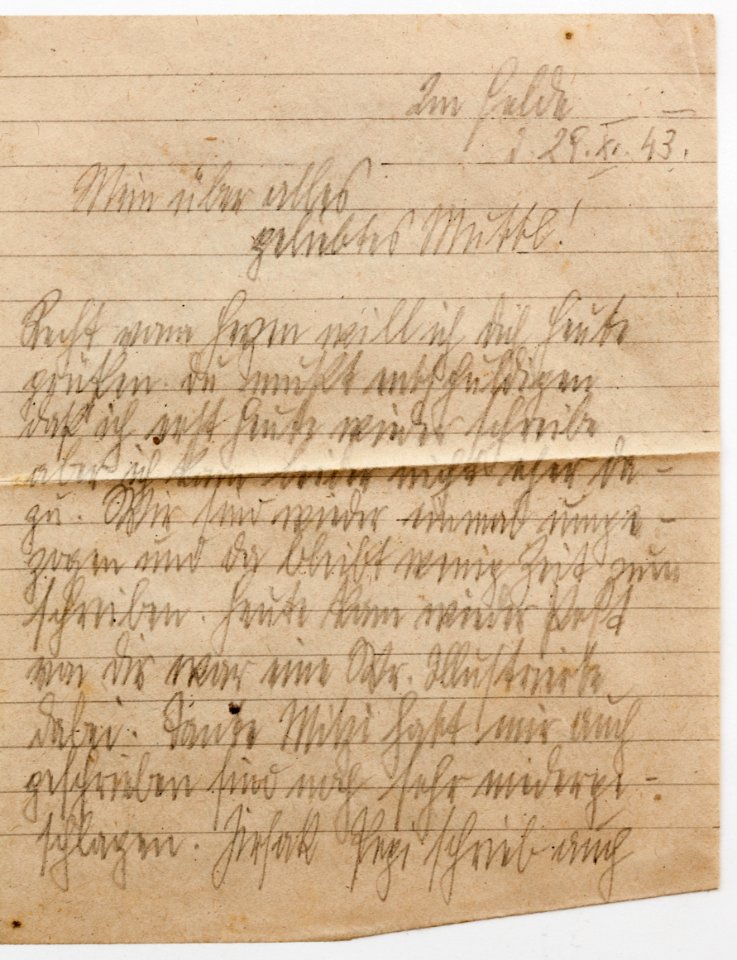 Im Felde
d. 29. XI. 43.
Mein über alles
geliebtes Muttl!
Recht vom Herzen will ich dich heute
grüßen. Du mußt entschuldigen
daß ich erst heute wieder schreibe
aber ich kam leider nicht eher da-
zu. Wir sind wieder einmal umge-
zogen und da bleibt wenig Zeit zum
schreiben. Heute kam wieder Post
von dir war eine Wr. Illustrierte
dabei. Tante Mitzi hatt mir auch
geschrieben sind noch sehr niederge-
schlagen. Pepi schrieb auch